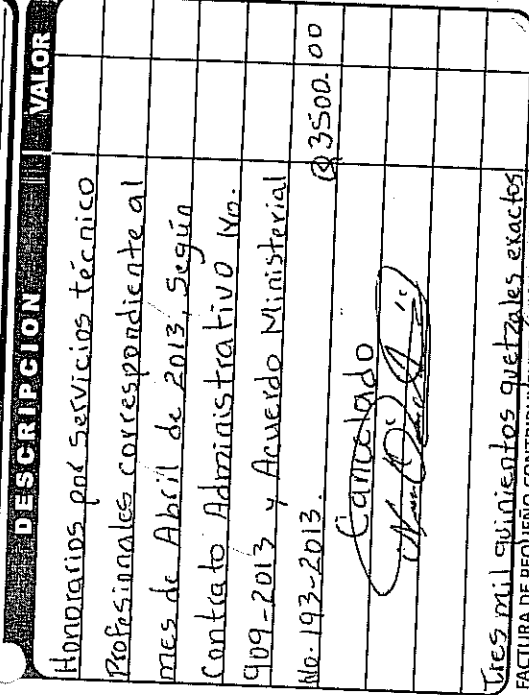 DESCRIPCION VALOR
Honorarios por servicios técnico
Profesionales correspondiente al
mes de Abril de 2013, Según
Contrato Administrativo No.
909-2013 y Acuerdo Ministerial
No. 193-2013. Q3500.00
Cancelado
Tres mil quinientos quetzales exactos
FACTURA DE PEQUEÑO CONTRIBUYENTE